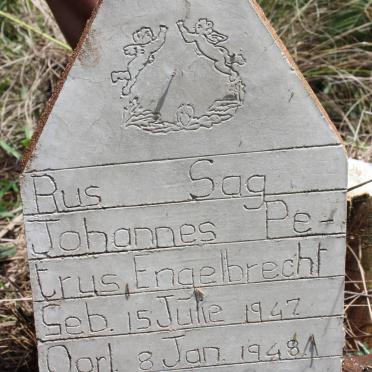 Rus Sag
Johannes Pe-
trus Engelbrecht
Geb. 15 Julie 1947
Oorl. 8 Jan. 1948